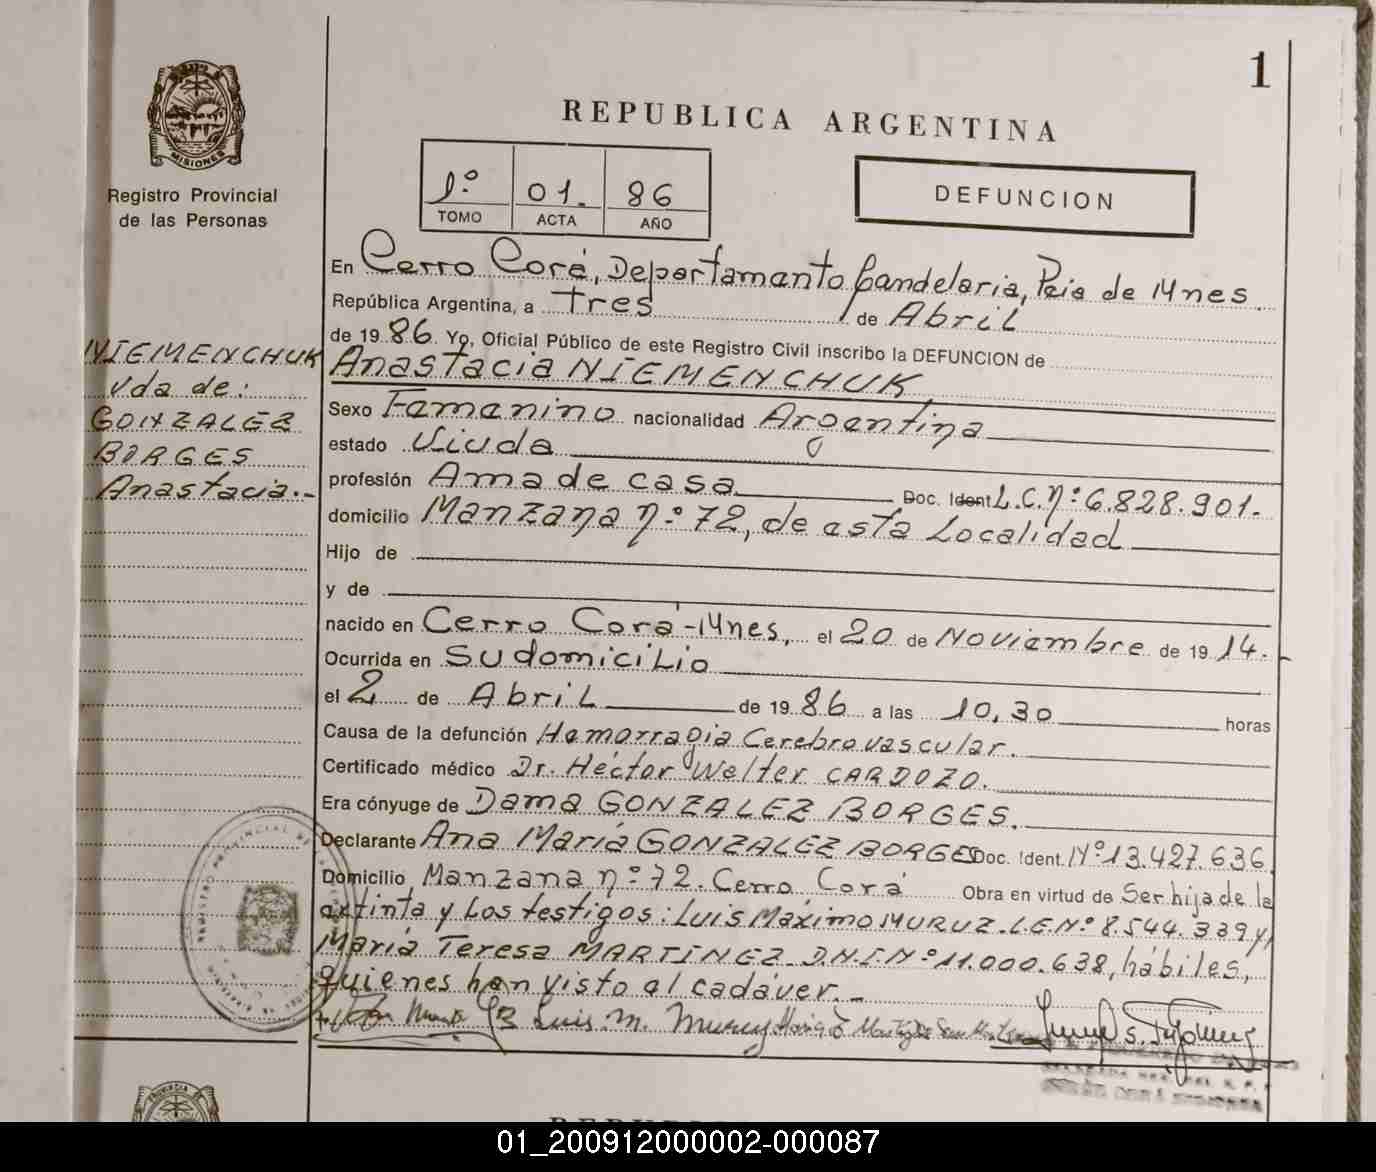 1
MISIONES
Registro Provincial
de las Personas
REPUBLICA ARGENTINA
1º 01. 86
TOMO ACTA AÑO
DEFUNCION
En Cerro Corá, Departamanto Candelaria, Pcia de Mnes
República Argentina, a tres de Abril
de 1986. Yo, Oficial Público de este Registro Civil inscribo la DEFUNCION de
Anastacia NIEMENCHUK
NIEMENCHUK
vda de:
GONZALEZ
BORGES
Anastacia.-
Sexo Famanino nacionalidad Argentina
estado Viuda
profesión Ama de casa Doc. Ident L.C.Nº: 6.828.901.
domicilio Manzana nº 72, de esta Localidad
Hijo de
y de
nacido en Cerro Corá-Mnes, el 20 de Noviembre de 1914.-
Ocurrida en su domicilio
el 2 de Abril de 1986 a las 10,30 horas
Causa de la defunción Hemorragia Cerebrovascular.
Certificado médico Dr. Héctor Walter CARDOZO.
Era cónyuge de Dama GONZALEZ BORGES.
Declarante Ana María GONZALEZ BORGES Doc. Ident. Nº 13.427.636
Domicilio Manzana nº 72. Cerro Corá Obra en virtud de Ser hija de la
extinta y Los testigos: Luis Máximo MURUZ. L.E.Nº 8.544.339 y
María Teresa MARTINEZ D.N.I Nº 11.000.638, hábiles,
quienes han visto al cadáver.-
Luis. M.
REPU
PROVINCIA DE
01_200912000002-000087